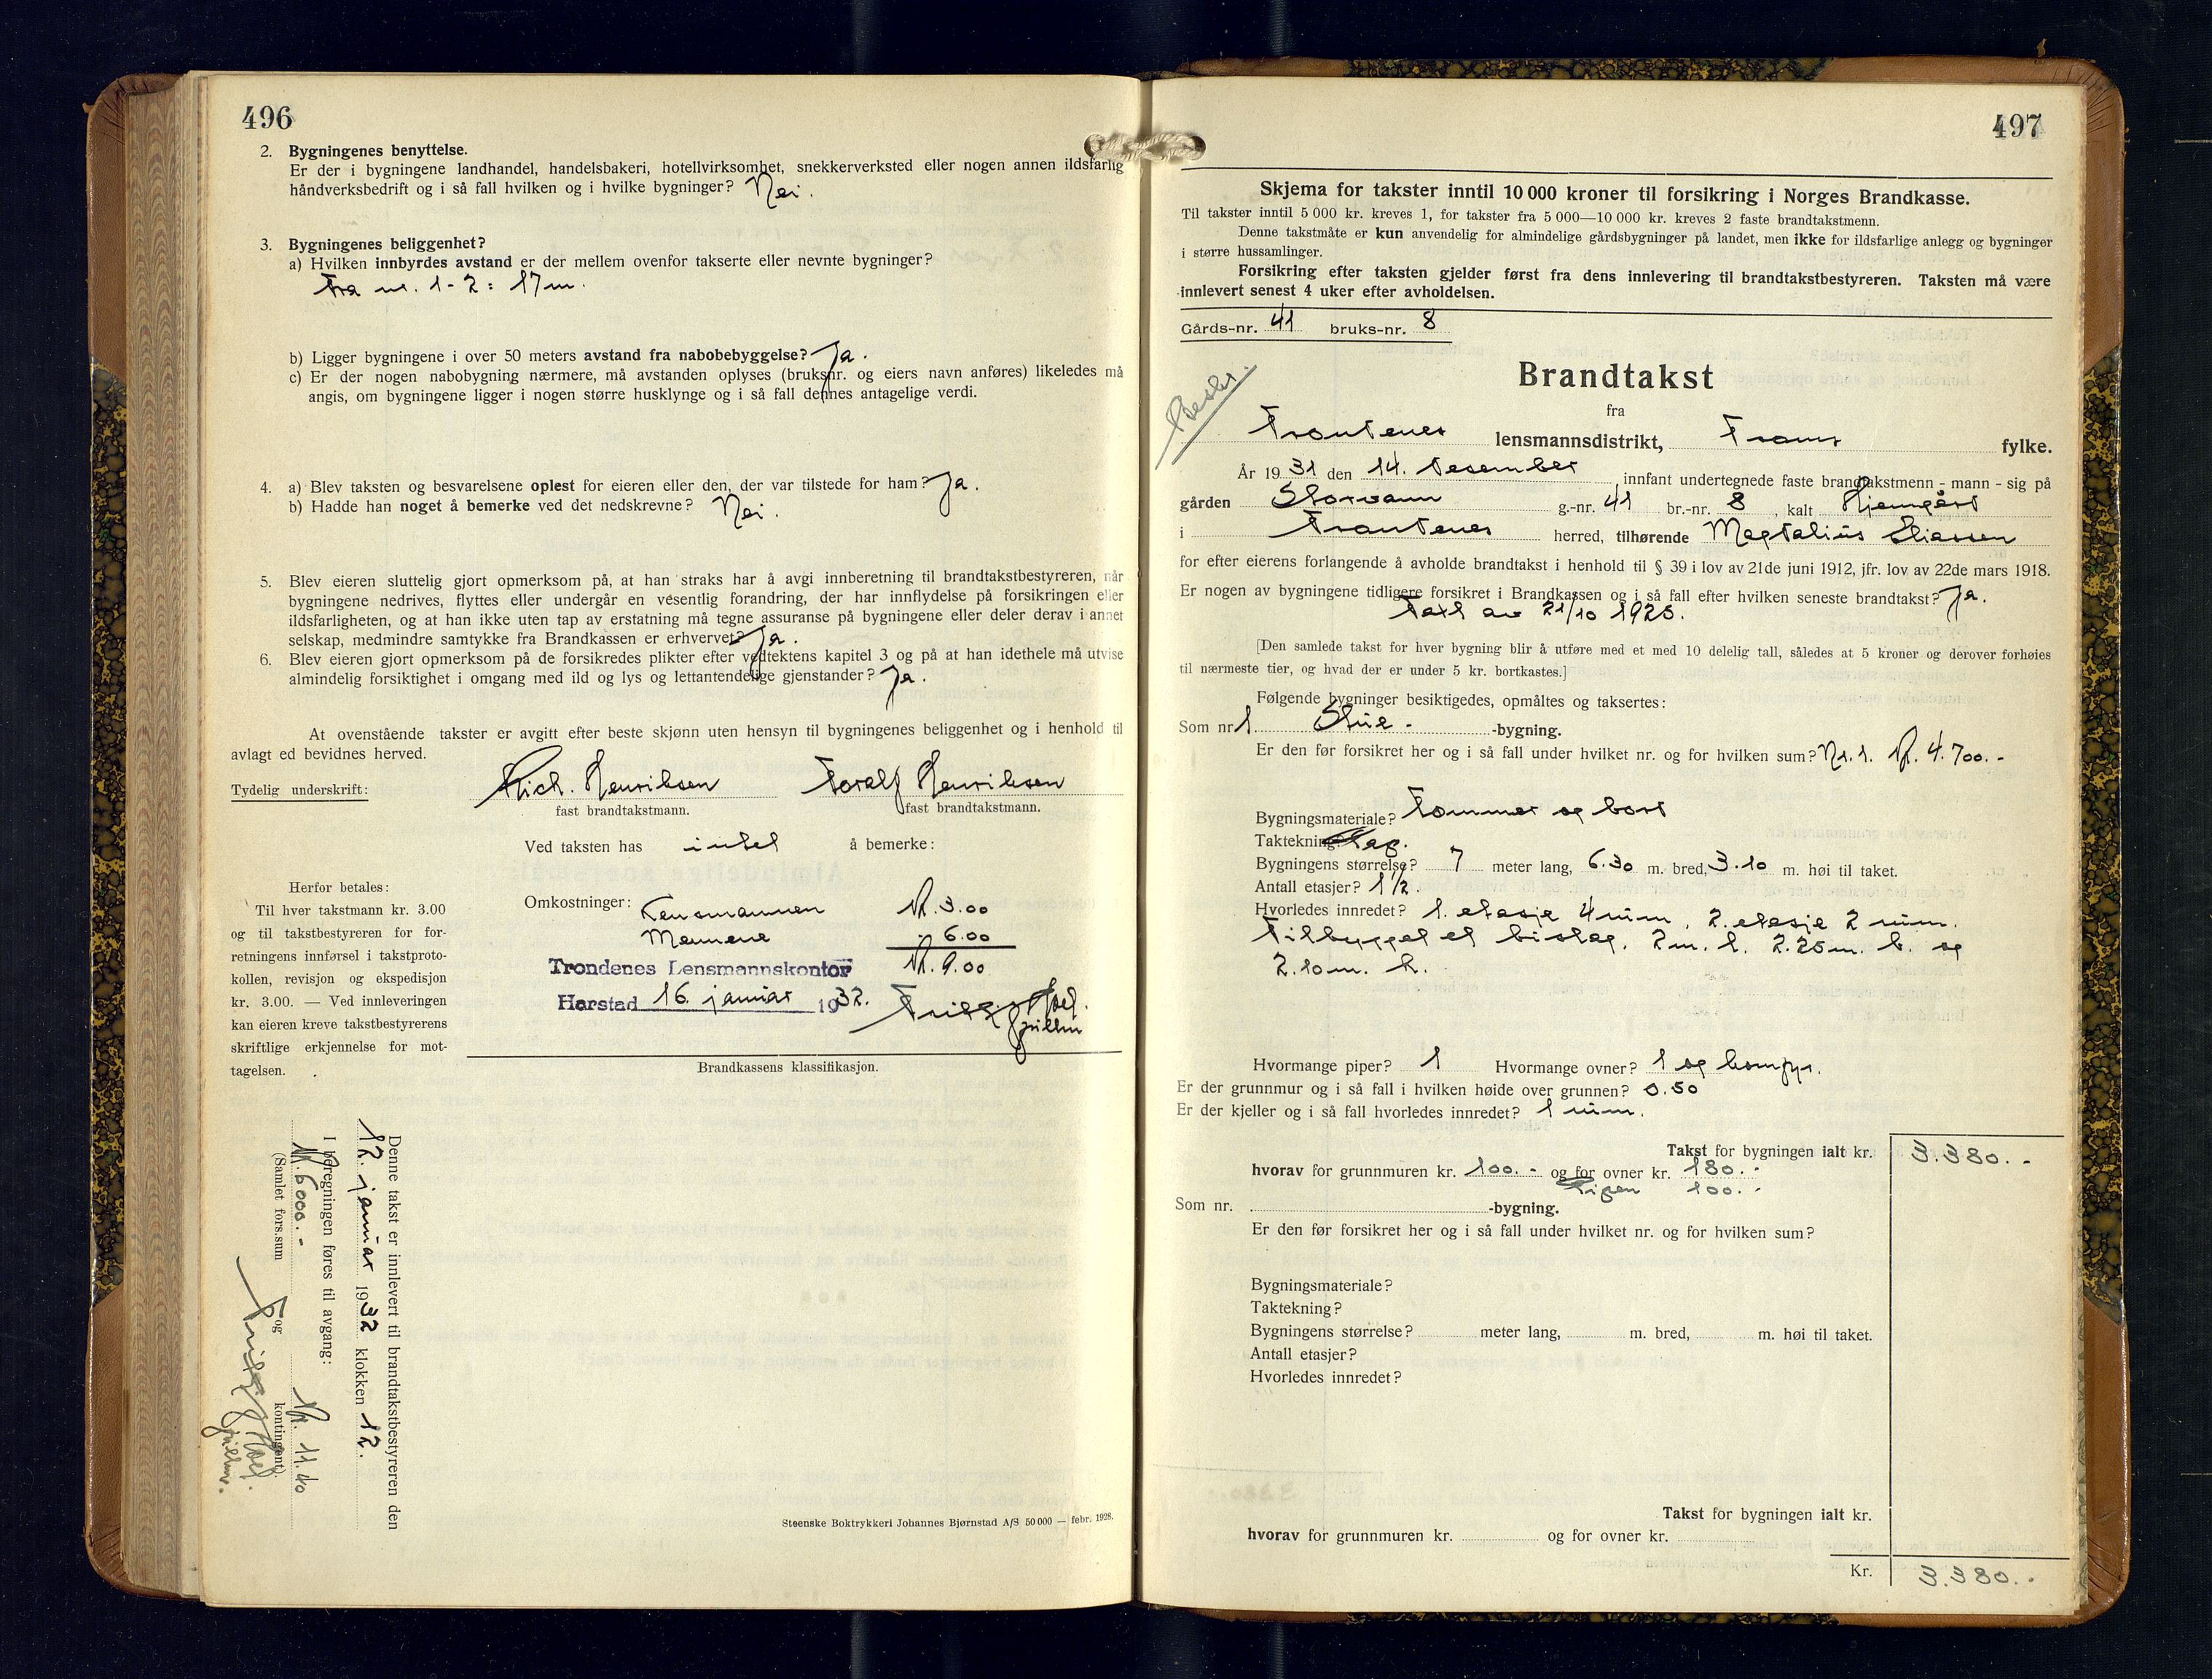 496
2. Bygningenes benyttelse.
Er der i bygningene landhandel, handelsbakeri, hotellvirksomhet, snekkerverksted eller nogen annen ildsfarlig
håndverksbedrift og i så fall hvilken og i hvilke bygninger? Nei.
3. Bygningenes beliggenhet?
a) Hvilken innbyrdes avstand er der mellem ovenfor takserte eller nevnte bygninger?
Fra nr. 1-2: 17m.
b) Ligger bygningene i over 50 meters avstand fra nabobebyggelse? Ja.
c) Er der nogen nabobygning nærmere, må avstanden oplyses (bruksnr. og eiers navn anføres) likeledes må
angis, om bygningene ligger i nogen større husklynge og i så fall dennes antagelige verdi.
4. a) Blev taksten og besvarelsene oplest for eieren eller den, der var tilstede for ham? Ja.
b) Hadde han noget å bemerke ved det nedskrevne? Nei.
5. Blev eieren sluttelig gjort opmerksom på, at han straks har å avgi innberetning til brandtakstbestyreren, når
bygningene nedrives, flyttes eller undergår en vesentlig forandring, der har innflydelse på forsikringen eller
ildsfarligheten, og at han ikke uten tap av erstatning må tegne assuranse på bygningene eller deler derav i annet
selskap, medmindre samtykke fra Brandkassen er erhvervet? Ja.
6. Blev eieren gjort opmerksom på de forsikredes plikter efter vedtektens kapitel 3 og på at han idethele må utvise
almindelig forsiktighet i omgang med ild og lys og lettantendelige gjenstander? Ja.
At ovenstående takster er avgitt efter beste skjønn uten hensyn til bygningenes beliggenhet og i henhold til
avlagt ed bevidnes herved.
Tydelig underskrift: Rich. Henriksen Toralf Henriksen
fast brandtakstmann. fast brandtakstmann.
Ved taksten has intet å bemerke:
Herfor betales:
Til hver takstmann kr. 3.00
og til takstbestyreren for for-
retningens innførsel i takstproto-
kollen, revisjon og ekspedisjon
kr. 3.00. — Ved innleveringen
kan eieren kreve takstbestyrerens
skriftlige erkjennelse for mot-
tagelsen.
Omkostninger: Lensmannen Kr. 3.00
Mennene - 6.00
Kr. 9.00
Trondenes Lensmannskontor
Harstad 16. januar 1932.
Brandkassens klassifikasjon.
Denne takst er innlevert til brandtakstbestyreren den
12. januar 1932 klokken 12.
I beregningen føres til avgang:
Kr. 6000.- og Kr. 11.40
(Samlet fors.sum kontingent).
Steenske Boktrykkeri Johannes Bjørnstad A/S 50 000 — febr. 1928.
497
Skjema for takster inntil 10 000 kroner til forsikring i Norges Brandkasse.
Til takster inntil 5 000 kr. kreves 1, for takster fra 5 000—10 000 kr. kreves 2 faste brandtakstmenn.
Denne takstmåte er kun anvendelig for almindelige gårdsbygninger på landet, men ikke for ildsfarlige anlegg og bygninger
i større hussamlinger.
Forsikring efter taksten gjelder først fra dens innlevering til brandtakstbestyreren. Taksten må være
innlevert senest 4 uker efter avholdelsen.
Gårds-nr. 41 bruks-nr. 8
Brandtakst
fra
Trondenes lensmannsdistrikt, Troms fylke.
År 1931 den 14. desember, innfant undertegnede faste brandtakstmenn - mann - sig på
gården Storvann g.-nr. 41 br.-nr. 8, kalt Hjemgård
i Trondenes herred, tilhørende Magdalius Eliassen
for efter eierens forlangende å avholde brandtakst i henhold til § 39 i lov av 21de juni 1912, jfr. lov av 22de mars 1918.
Er nogen av bygningene tidligere forsikret i Brandkassen og i så fall efter hvilken seneste brandtakst? Ja.
Takst av 21/10 1925.
[Den samlede takst for hver bygning blir å utføre med et med 10 delelig tall, således at 5 kroner og derover forhøies
til nærmeste tier, og hvad der er under 5 kr. bortkastes.]
Følgende bygninger besiktigedes, opmåltes og taksertes:
Som nr. 1 Stue- -bygning.
Er den før forsikret her og i så fall under hvilket nr. og for hvilken sum? Nr. 1. Kr. 4.700.-
Bygningsmateriale? Tømmer og bord
Taktekning?
Bygningens størrelse? 7 meter lang, 6.30 m. bred, 3.10 m. høi til taket.
Antall etasjer? 1 1/2.
Hvorledes innredet? 1. etasje 4 rum, 2. etasje 2 rum.
Tilbygget et bislag, 2m. l. 2.25m. b. og
2.10m. h.
Hvormange piper? 1 Hvormange ovner? 1 og komfyr.
Er der grunnmur og i så fall i hvilken høide over grunnen? 0.50
Er der kjeller og i så fall hvorledes innredet? 1 rum.
Takst for bygningen ialt kr. 3.380.-
hvorav for grunnmuren kr. 100.- og for ovner kr. 180.-
Pipen 100.-
Som nr. -bygning.
Er den før forsikret her og i så fall under hvilket nr. og for hvilken sum?
Bygningsmateriale?
Taktekning?
Bygningens størrelse? meter lang, m. bred, m. høi til taket.
Antall etasjer?
Hvorledes innredet?
Takst for bygningen ialt kr.
hvorav for grunnmuren kr. og for ovner kr.
Kr. 3.380.-